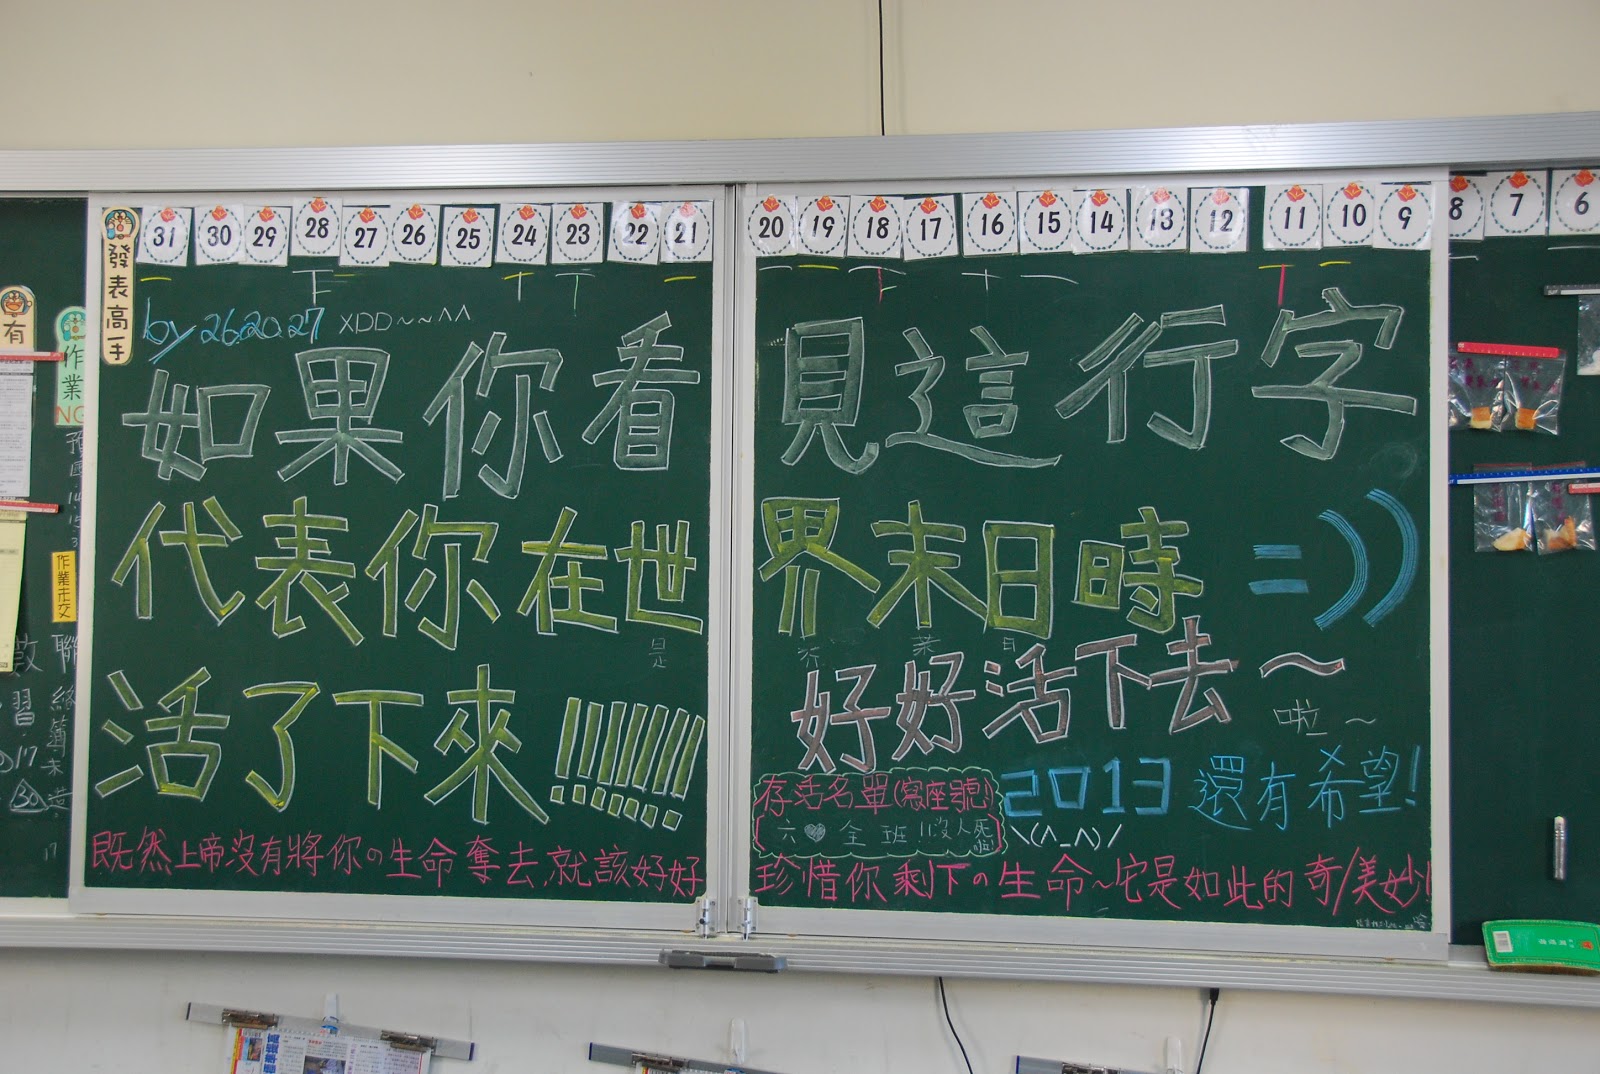 31 30 29 28 27 26 25 24 23 22 21 20 19 18 17 16 15 14 13 12 11 10 9 8 7 6
發表高手
by 26.20.27 XDD~~^^
如果你看見這行字
代表你在世界末日時 =))
是
茶 葉 日
活了下來!!!!!!!
好好活下去~
啦~
存活名單(寫座號)
六♥全班!!沒人死啦!
2013還有希望!
\(^_^)/
既然上帝沒有將你の生命奪去,就該好好
珍惜你剩下の生命~它是如此的奇/美妙!
有
作業NG
作業未交
聯絡簿未
習
17
30
17